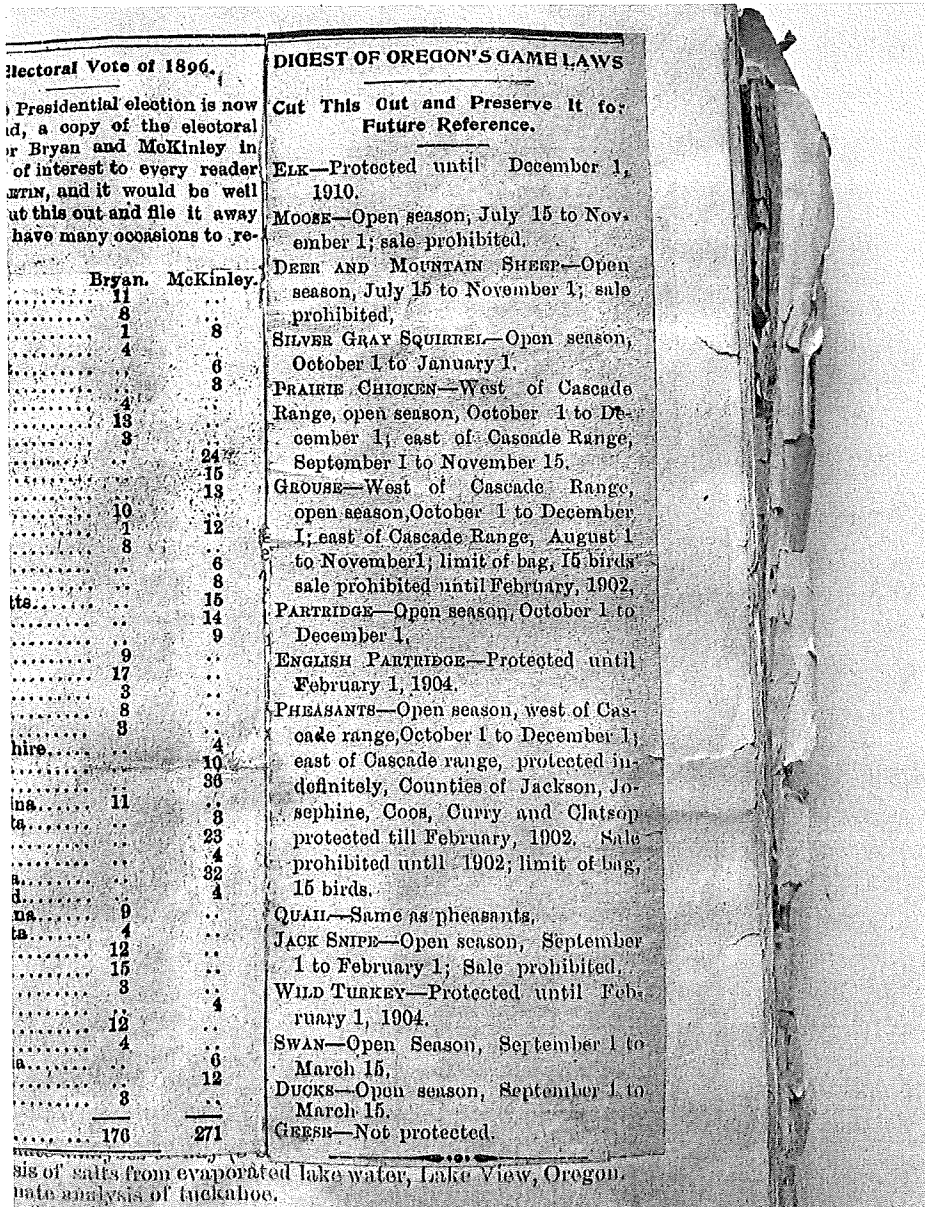 Electoral Vote of 1896.
Presidential election is now
d, a copy of the electoral
or Bryan and McKinley in
of interest to every reader
ETIN, and it would be well
ut this out and file it away
have many occasions to re-
Bryan. McKinley.
........ 11 ..
........ 8 ..
........ 1 8
........ 4 ..
........ .. 6
........ .. 8
........ 4 ..
........ 13 ..
........ 3 ..
........ .. 24
........ .. 15
........ .. 13
........ 10 ..
........ 1 12
........ 8 ..
........ .. 6
........ .. 8
tts....... .. 15
........ .. 14
........ .. 9
........ 9 ..
........ 17 ..
........ 3 ..
........ 8 ..
........ 3 ..
hire..... .. 4
........ .. 10
........ .. 36
ina...... 11 ..
ta....... .. 3
........ .. 23
........ .. 4
a........ .. 32
d........ .. 4
na....... 9 ..
ta....... 4 ..
........ 12 ..
........ 15 ..
........ 3 ..
........ .. 4
........ 12 ..
........ 4 ..
ia....... .. 6
........ .. 12
........ 3 ..
..... ... 176 271
DIGEST OF OREGON'S GAME LAWS
Cut This Out and Preserve It for
Future Reference.
ELK—Protected until December 1,
1910.
MOOSE—Open season, July 15 to Nov-
ember 1; sale prohibited.
DEER AND MOUNTAIN SHEEP—Open
season, July 15 to November 1; sale
prohibited,
SILVER GRAY SQUIRREL—Open season,
October 1 to January 1.
PRAIRIE CHICKEN—West of Cascade
Range, open season, October 1 to De-
cember 1; east of Cascade Range,
September I to November 15.
GROUSE—West of Cascade Range,
open season,October 1 to December
I; east of Cascade Range, August 1
to November1; limit of bag, 15 birds
sale prohibited until February, 1902,
PARTRIDGE—Open season, October 1 to
December 1,
ENGLISH PARTRIDGE—Protected until
February 1, 1904.
PHEASANTS—Open season, west of Cas-
cade range,October 1 to December 1;
east of Cascade range, protected in-
definitely, Counties of Jackson, Jo-
sephine, Coos, Curry and Clatsop
protected till February, 1902. Sale
prohibited until 1902; limit of bag,
15 birds.
QUAIL—Same as pheasants,
JACK SNIPE—Open season, September
1 to February 1; Sale prohibited.
WILD TURKEY—Protected until Feb-
ruary 1, 1904.
SWAN—Open Season, September 1 to
March 15.
DUCKS—Open season, September 1 to
March 15.
GEESE—Not protected.
sis of salts from evaporated lake water, Lake View, Oregon.
nate analysis of tuckahoe.